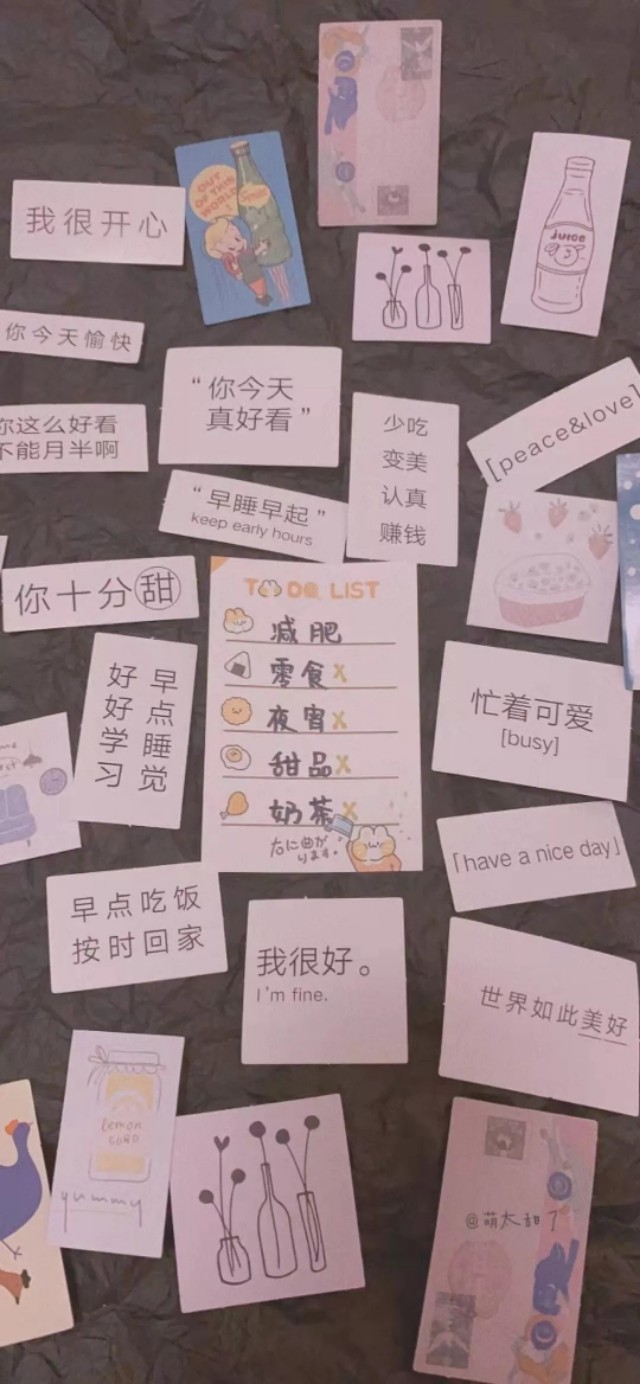 我很开心
OUT
OF THIS
WORLD
JUICE
你今天愉快
“你今天
真好看”
你这么好看
不能月半啊
少吃
变美
认真
赚钱
[peace&love]
“早睡早起”
keep early hours
你十分甜
TO DO LIST
减肥
零食X
夜宵X
甜品X
奶茶X
右に曲が
ります。
早点睡觉
好好学习
忙着可爱
[busy]
「have a nice day」
早点吃饭
按时回家
我很好。
I'm fine.
世界如此美好
lemon
soap
yummy
@萌太甜了